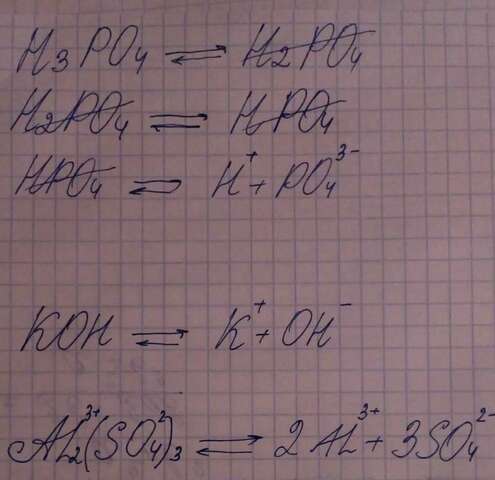 H₃PO₄ ⇌ H₂PO₄
H₂PO₄ ⇌ HPO₄
HPO₄ ⇌ H⁺ + PO₄³⁻
KOH ⇌ K⁺ + OH⁻
AL₂³⁺(SO₄²)₃ ⇌ 2AL³⁺ + 3SO₄²⁻